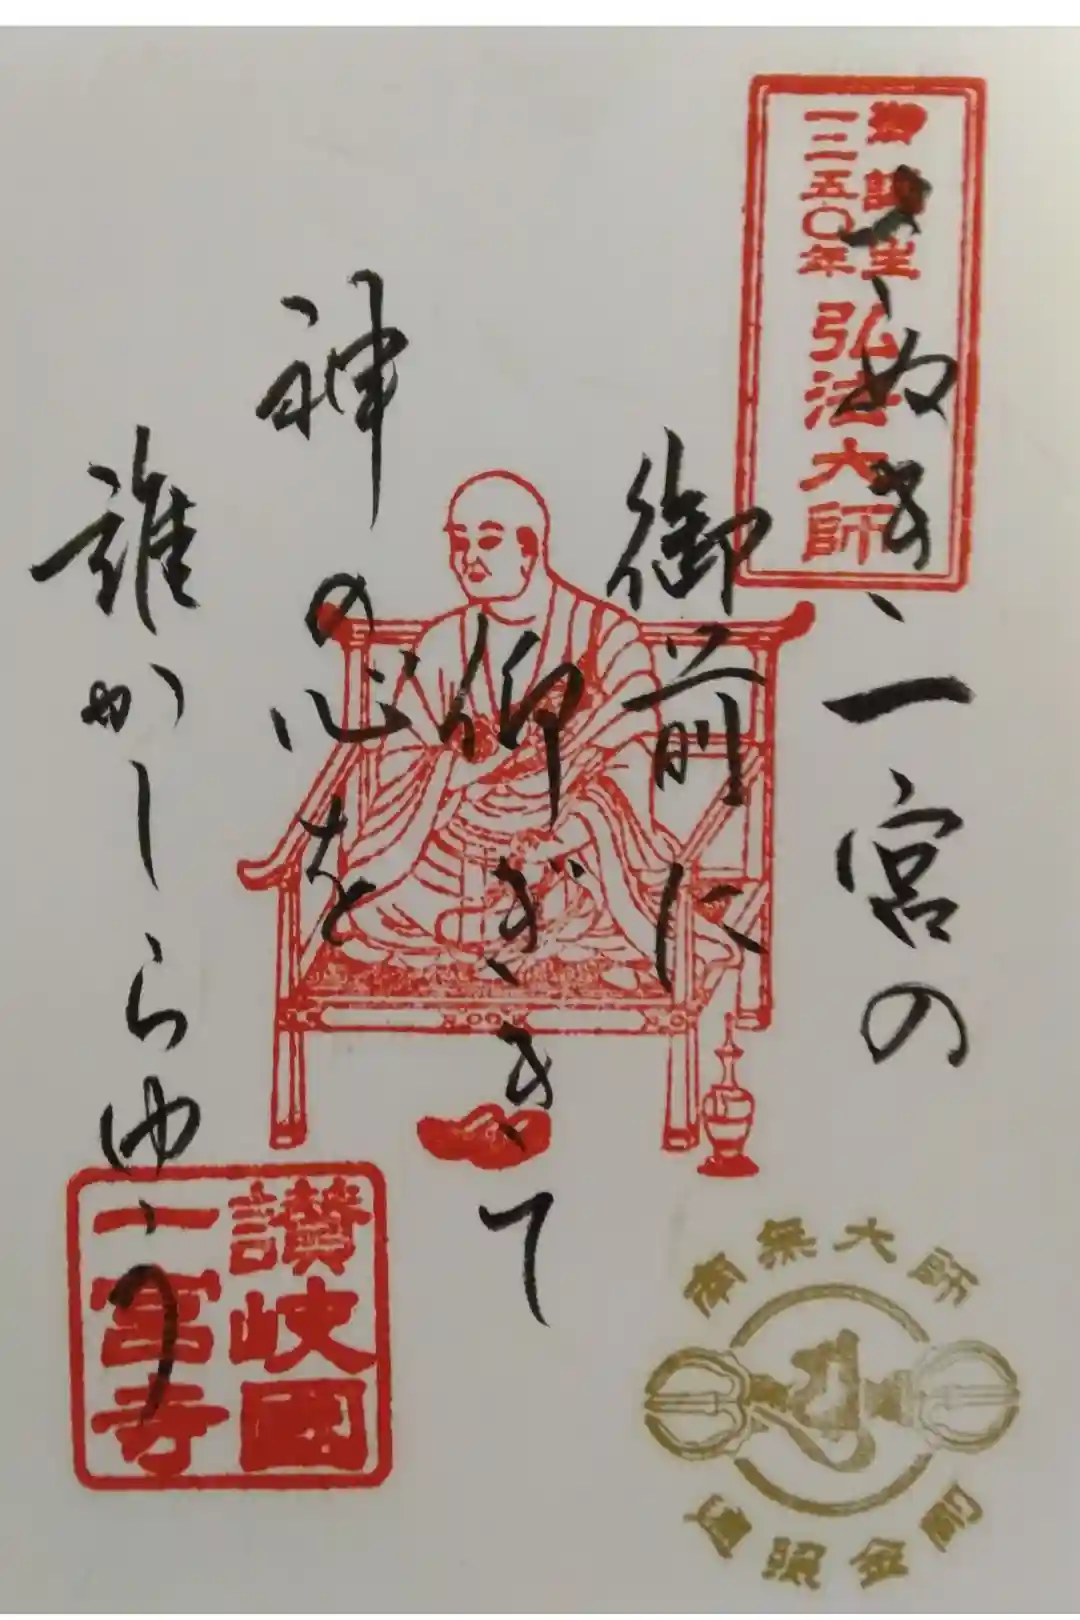 御誕生
一二五〇年
弘法大師
さぬき一宮の
御前に
仰ぎきて
神の心を
誰かしらゆう
讃岐國
一宮寺
南無大師
遍照金剛